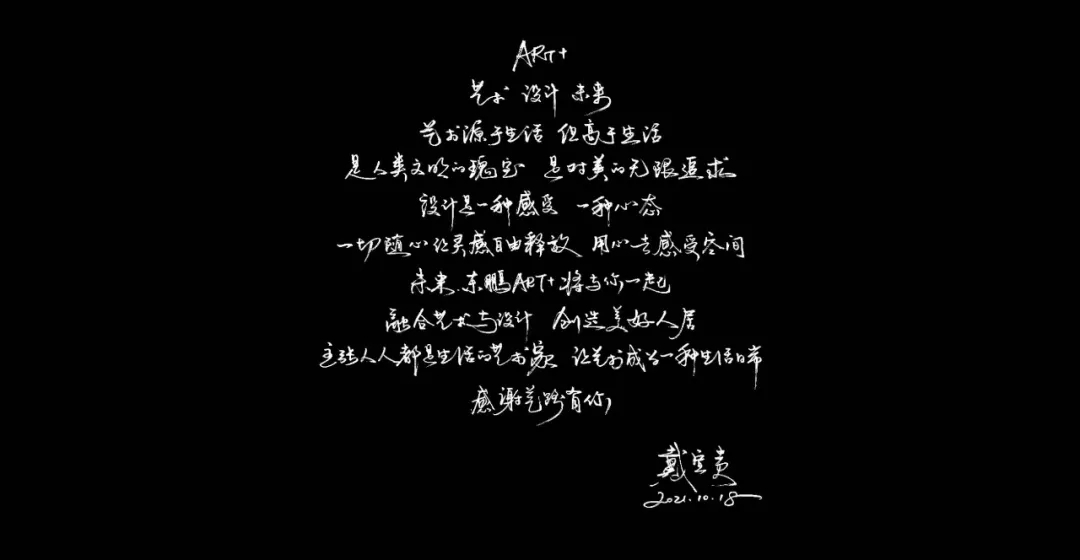 ART+
艺术 设计 未来
艺术源于生活 但高于生活
是人类文明的瑰宝 是对美的无限追求
设计是一种感受 一种心态
一切随心让灵感自由释放 用心去感受空间
未来.东鹏ART+将与你一起
融合艺术与设计 创造美好人居
主张人人都是生活的艺术家 让艺术成为一种生活日常
感谢艺路有你
戴宝贵
2021.10.18